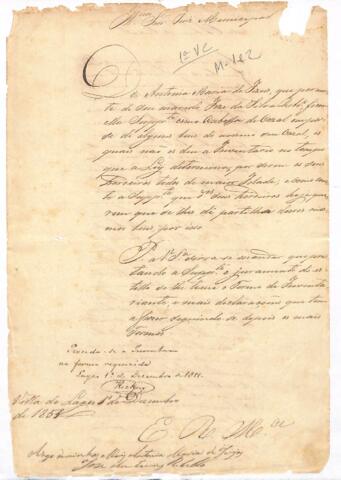 Illmo Snr Juiz Municipal
1ª VC
M-182
Diz Antonia Maria de Jesus, que por mor
te de seu marido José da Silva
ella Suppte como Cabeça de Cazal em pos
se de alguns bens do mesmo seu Cazal, os
quais não os deu a Inventario no tempo
que a Ley determina, por serem os seus
herdeiros todos de maior Idade, e como cons
te a Suppte que os herdeiros
rem que se lhes dê partilha dos mes
mos bens, por isso
P. a V. Sª. se mandar que pres
tando a Suppte o juramento de es
tillo se lhe tome o Termo de Inventa
riante, e mais declarações que tem
a fazer seguindo se depois os mais
termos
Proceda-se a Inventario
na forma requerida
Lages 1º de Dezembro de 1851.
Villa de Lages 1º de Dezembro
de 1851
E. R. Mce
Arogo de minha Antonia Maria de Jesus
José